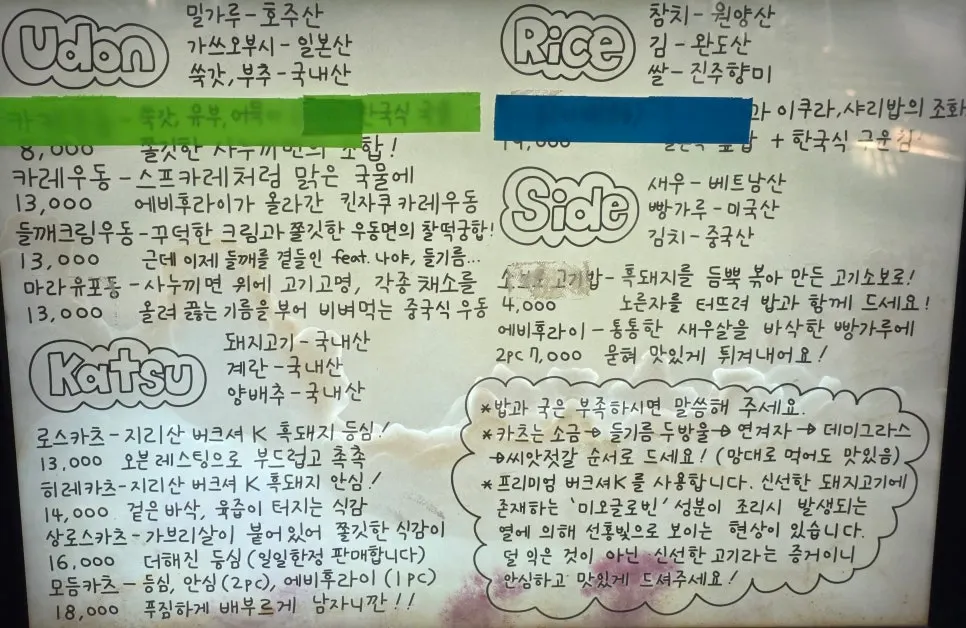 Udon
밀가루 - 호주산
가쓰오부시 - 일본산
쑥갓, 부추 - 국내산
쑥갓, 유부, 한국식
8,000 쫄깃한 사누끼면의 조합!
카레우동 - 스프카레처럼 맑은 국물에
13,000 에비후라이가 올라간 킨자쿠 카레우동
들깨크림우동 - 꾸덕한 크림과 쫄깃한 우동면의 찰떡궁합!
13,000 근데 이제 들깨를 곁들인 feat. 나야, 들기름...
마라유포동 - 사누끼면 위에 고기고명, 각종 채소를
13,000 올려 끓는 기름을 부어 비벼먹는 중국식 우동
Katsu
돼지고기 - 국내산
계란 - 국내산
양배추 - 국내산
로스카츠 - 지리산 버크셔 K 흑돼지 등심!
13,000 오븐 레스팅으로 부드럽고 촉촉
히레카츠 - 지리산 버크셔 K 흑돼지 안심!
14,000 겉은 바삭, 육즙이 터지는 식감
상로스카츠 - 가브리살이 붙어있어 쫄깃한 식감이
16,000 더해진 등심 (일일한정 판매합니다)
모듬카츠 - 등심, 안심 (2pc), 에비후라이 (1pc)
18,000 푸짐하게 배부르게 남자니깐!!
Rice
참치 - 원양산
김 - 완도산
쌀 - 진주향미
과 이쿠라, 샤리밥의 조화
+ 한국식 구운김
Side
새우 - 베트남산
빵가루 - 미국산
김치 - 중국산
소보로 고기밥 - 흑돼지를 듬뿍 볶아 만든 고기소보로!
4,000 노른자를 터뜨려 밥과 함께 드세요!
에비후라이 - 통통한 새우살을 바삭한 빵가루에
2pc 7,000 묻혀 맛있게 튀겨내어요!
*밥과 국은 부족하시면 말씀해 주세요.
*카츠는 소금 → 들기름 두방울 → 연겨자 → 데미그라스
→씨앗젓갈 순서로 드세요! (맘대로 먹어도 맛있음)
*프리미엄 버크셔K를 사용합니다. 신선한 돼지고기에
존재하는 '미오글로빈' 성분이 조리시 발생되는
열에 의해 선홍빛으로 보이는 현상이 있습니다.
덜 익은 것이 아닌 신선한 고기라는 증거이니
안심하고 맛있게 드셔주세요!